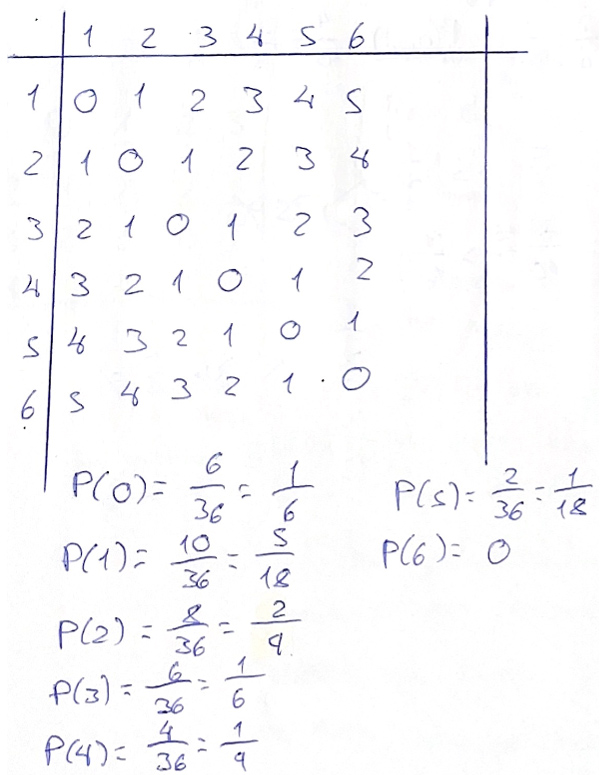 1 2 3 4 5 6
1 0 1 2 3 4 5
2 1 0 1 2 3 4
3 2 1 0 1 2 3
4 3 2 1 0 1 2
5 4 3 2 1 0 1
6 5 4 3 2 1 0
P(0) = 6/36 = 1/6
P(1) = 10/36 = 5/18
P(2) = 8/36 = 2/9
P(3) = 6/36 = 1/6
P(4) = 4/36 = 1/9
P(5) = 2/36 = 1/18
P(6) = 0